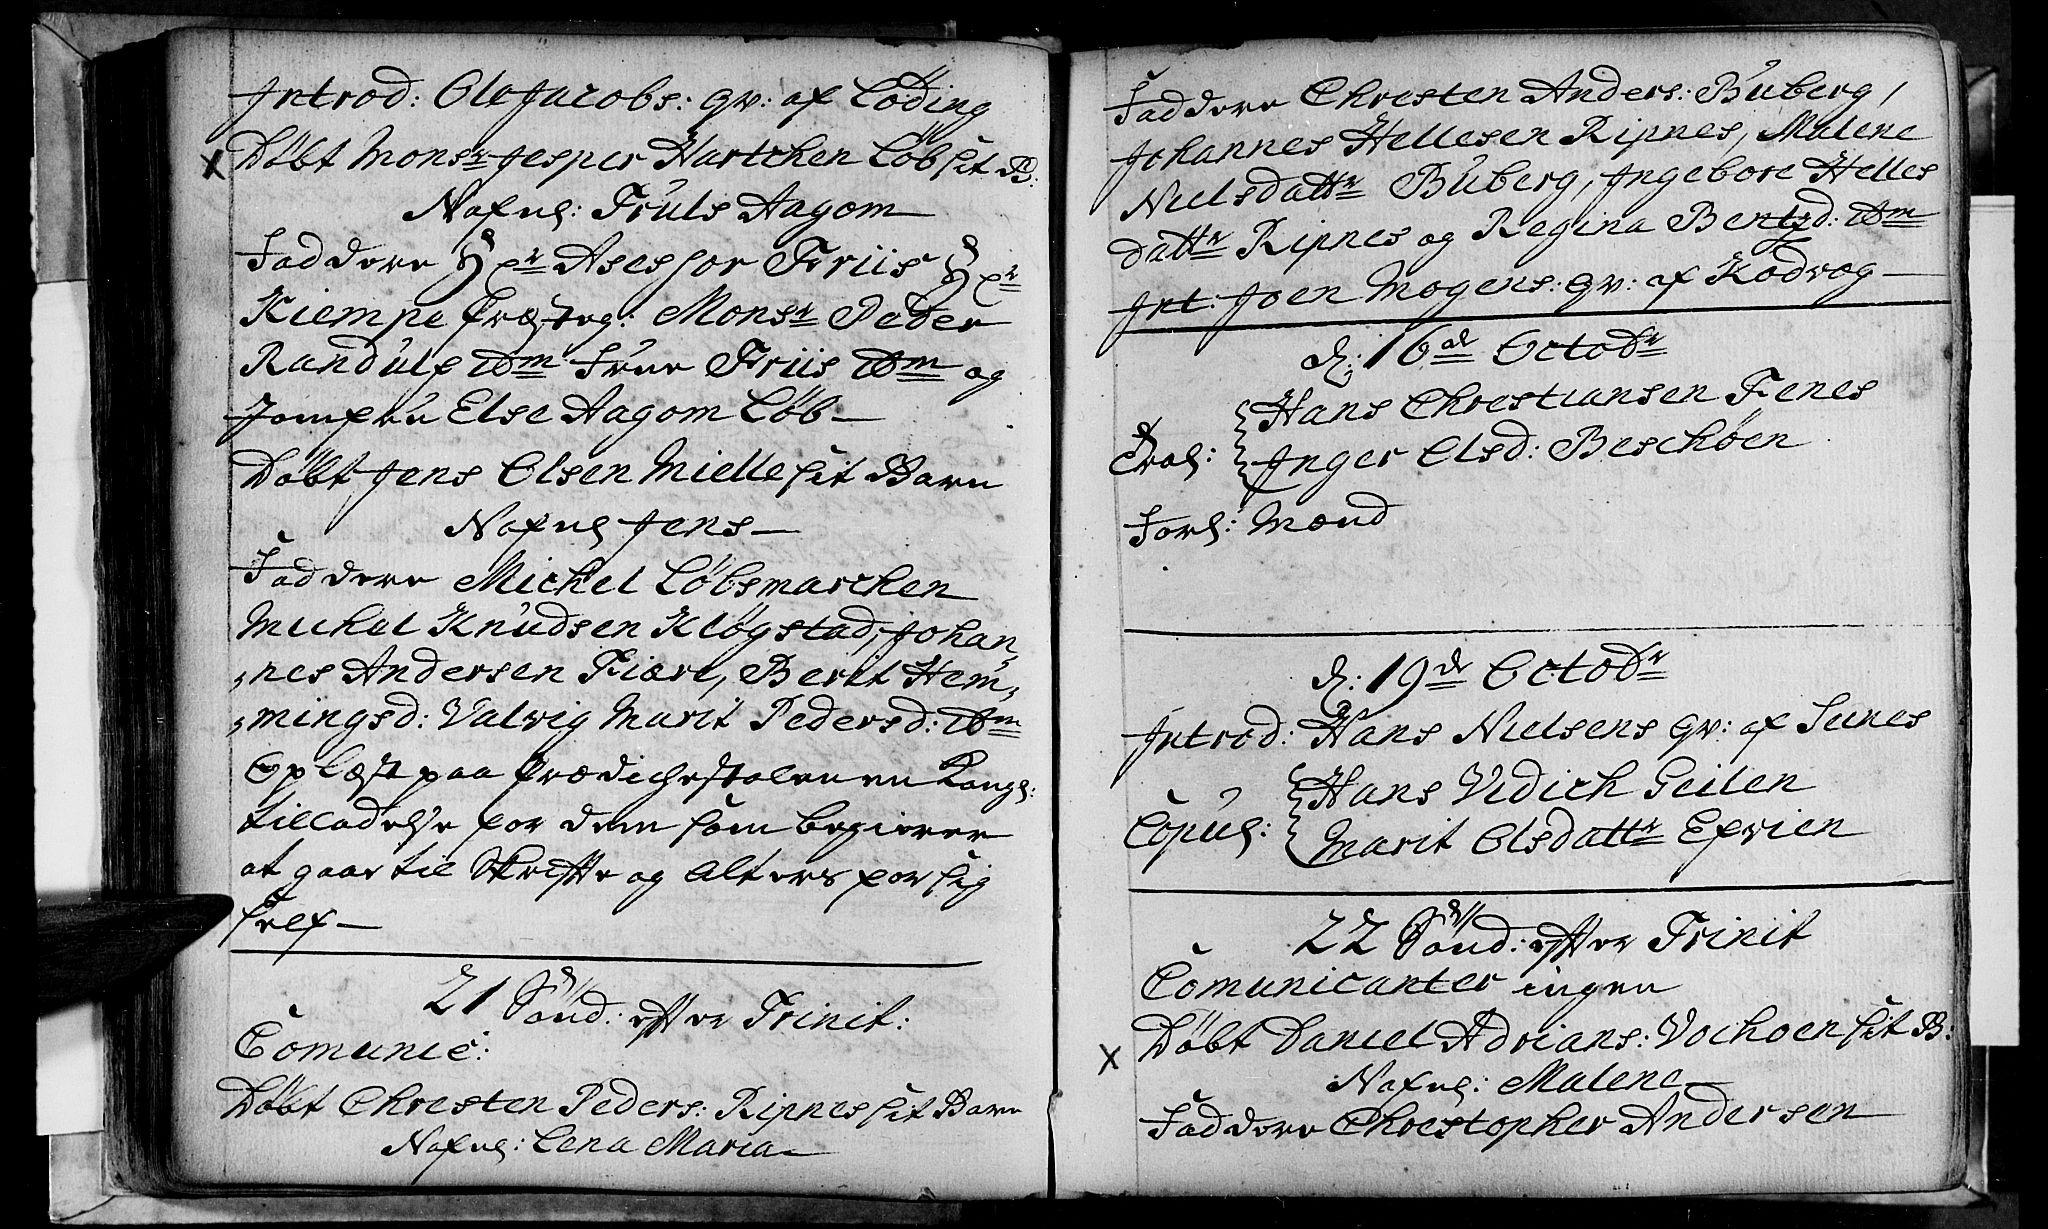 Introd: Ole Jacobs: qv: af Løding
x Døbt Monsr Jesper Hartchen Løb sit B:
Nafnl: Truls Aagom
Faddere Hr Asessor Friis Hr
Kiempe Monsr Peder
Randulf ibm Frue Friis ibm og
Jomfru Else Aagom Løb
Døbt Jens Olsen Mielle sit Barn
Nafnl Jens
Faddere Michel Løbsmarchen
Michel Knudsen Kløgstad, Johan
nes Andersen Fiære, Berit Hem
mingsd: Valvig Marit Pedersd: ibm
Oplæst paa Prædichestolen en Kongl:
tilladelse for dem som begierer
at gaae til Skrifte og Alters for sig
self
21 Sønd: efter Trinit:
Comunic:
Døbt Chresten Peders: Ripnes sit Barn
Nafnl: Lena Maria
Faddere Chresten Anders: Buberg,
Johannes Hellesen Ripnes, Malene
Nielsdattr Buberg, Ingebore Helles
dattr Ripnes og Regina Bentsd: ibm
Int: Joen Mogens: qv: af Kodvog
d: 16de Octobr
Trol: Hans Chrestiansen Fenes
Inger Olsd: Beschøen
Forl: Mænd
d: 19de Octobr
Introd: Hans Nielsens qv: af Seines
Copul: Hans Vidich Geilen
Marit Olsdattr Efvien
22 Sønd: efter Trinit
Comunicanter ingen
x Døbt Daniel Adrians: Vochoen sit B:
Nafnl: Malene
Faddere Chrestopher Andersen